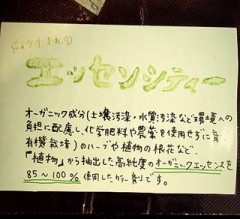 ドイツ生まれの
エッセンシティー
オーガニック成分(土壌汚染・水質汚染など環境への
負担に配慮し、化学肥料や農薬を使用せずに育
有機栽培)のハーブや植物の根花など、
「植物」から抽出した高純度のオーガニックエッセンスを
85〜100%使用したカラー剤です。